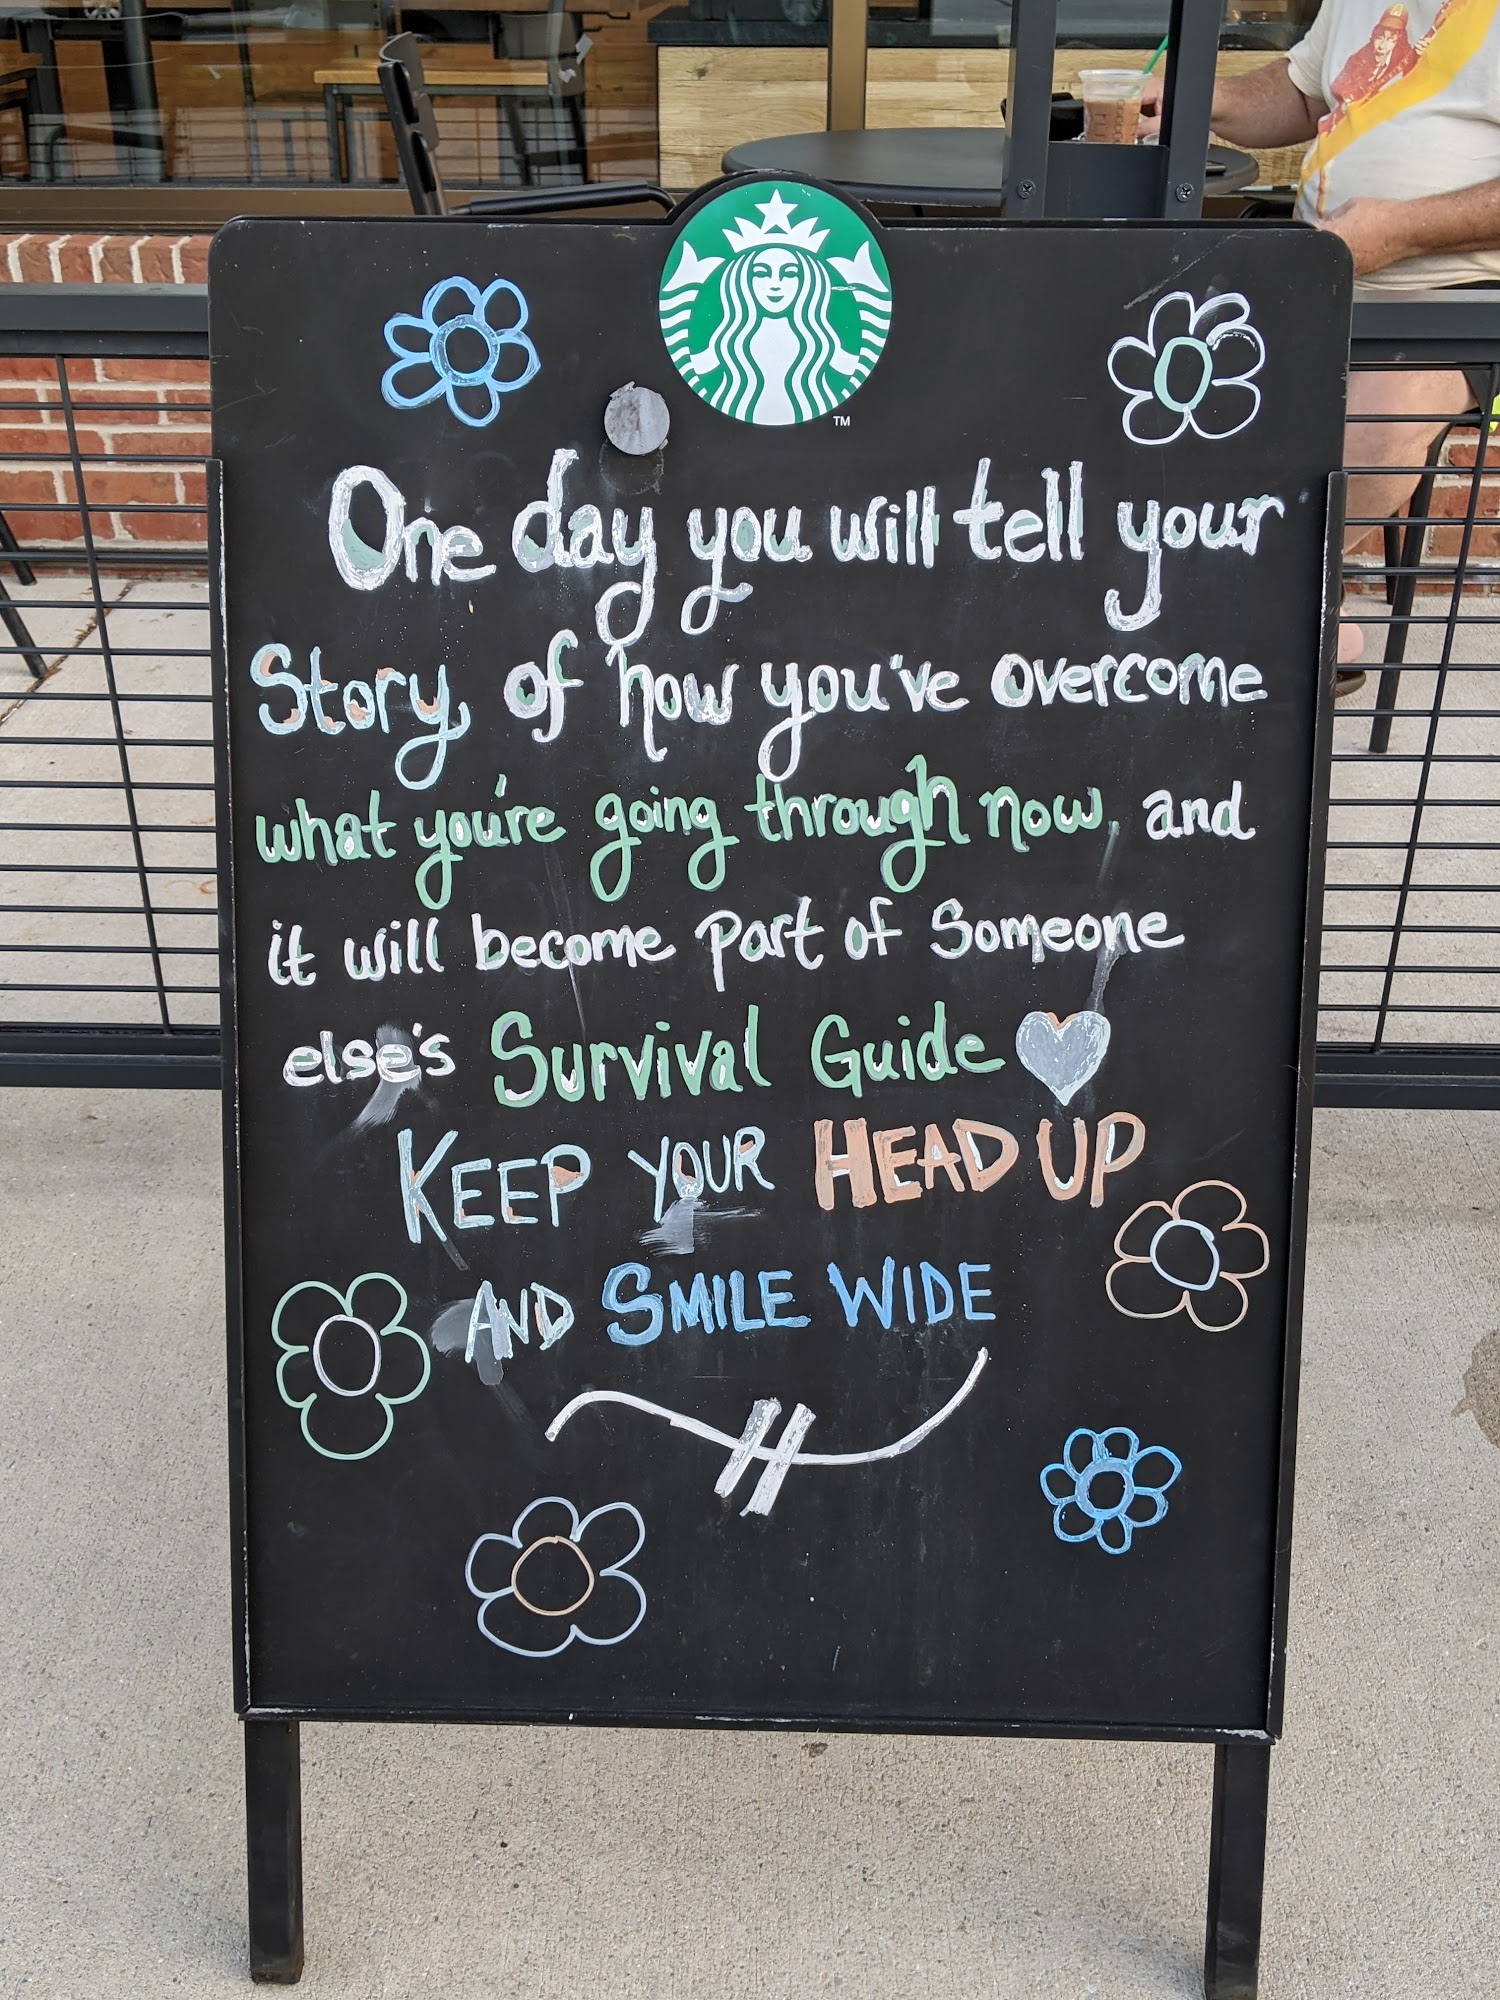 TM
One day you will tell your
Story, of how you've overcome
what you're going through now, and
it will become part of Someone
else's Survival Guide
KEEP YOUR HEAD UP
AND SMILE WIDE